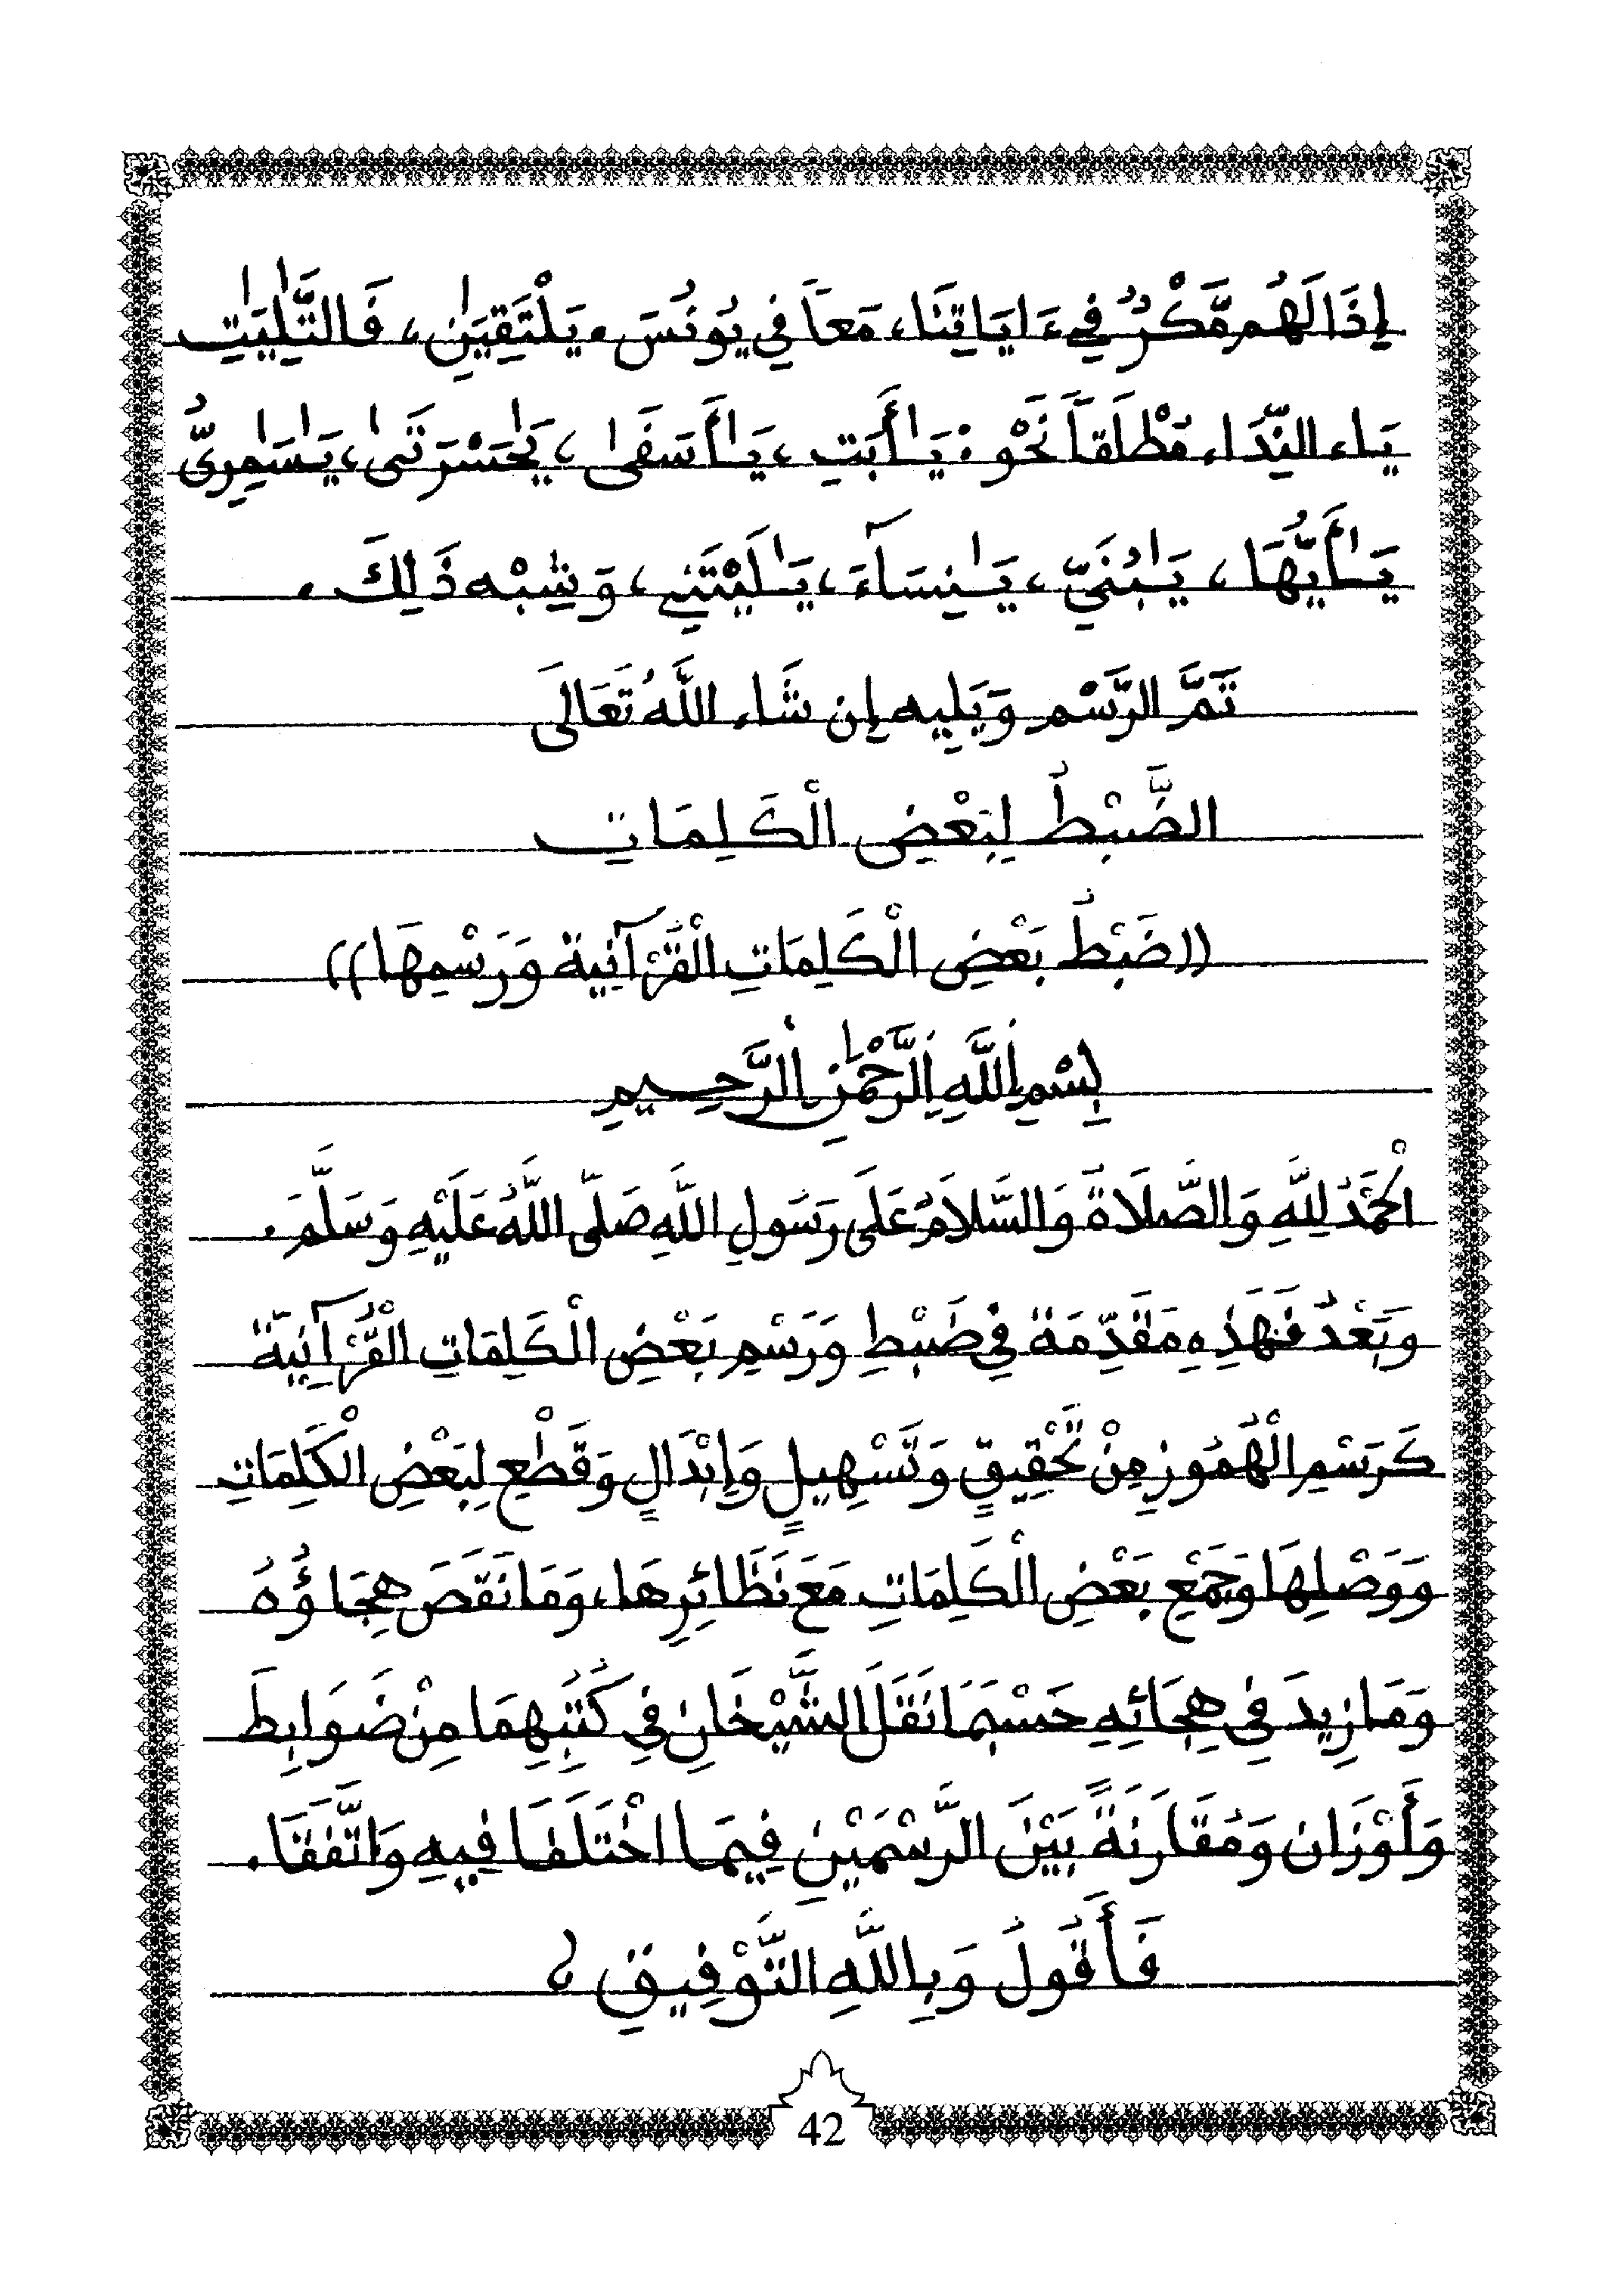 إِذَا لَهُم مَّكْرٌ فِيءَايَاتِنَا، مَعاً فِي يُونُسَ. يَلْتَقِيَٰنِ، فَالتَّٰلِيَٰتِ
يَاء النِّدَاء مُطْلَقاً نَحْوُ: يَٰأَبَتِ، يَٰأَسَفَىٰ، يَٰحَسْرَتَىٰ، يَٰسَٰمِرِيُّ
يَٰأَيُّهَا، يَٰبُنَيِّ، يَٰنِسَآءَ، يَٰلَيْتَنِي، وَشِبْه ذَلِكَ.
تَمَّ الرَّسْم وَيَلِيه إِن شَاء اللَّهُ تَعَالَى
الضَّبْطُ لِبَعْضِ الْكَلِمَاتِ
((ضَبْطُ بَعْضِ الْكَلِمَاتِ الْقُرْآنِية وَرَسْمِهَا))
بِسْمِ اللَّهِ الرَّحْمَٰنِ الرَّحِيمِ
الْحَمْدُ لِلَّهِ وَالصَّلَاةُ وَالسَّلَامُ عَلَى رَسُولِ اللَّهِ صَلَّى اللَّهُ عَلَيْهِ وَسَلَّمَ.
وَبَعْدُ فَهَذِهِ مُقَدِّمَة فِي ضَبْطِ وَرَسْمِ بَعْضِ الْكَلِمَاتِ الْقُرْآنِيَّة
كَرَسْمِ الْهُمُوزِ مِنْ تَحْقِيقٍ وَتَسْهِيلٍ وَإِبْدَالٍ وَقَطْعِ لِبَعْضِ الْكَلِمَاتِ
وَوَصْلِهَا وَجَمْعِ بَعْضِ الْكَلِمَاتِ مَعَ نَظَائِرِهَا، وَمَا نَقَصَ هِجَاؤُهُ
وَمَا زِيدَ فِي هِجَائِهِ حَسْبَمَا نَقَلَ الشَّيْخَانِ فِي كُتُبِهِمَا مِنْ ضَوَابِطَ
وَأَوْزَان وَمُقَارَنَةً بَيْنَ الرَّسْمَيْنِ فِيمَا اخْتَلَفَا فِيهِ وَاتَّفَقَا.
فَأَقُولُ وَبِاللَّهِ التَّوْفِيقِ ؟
42